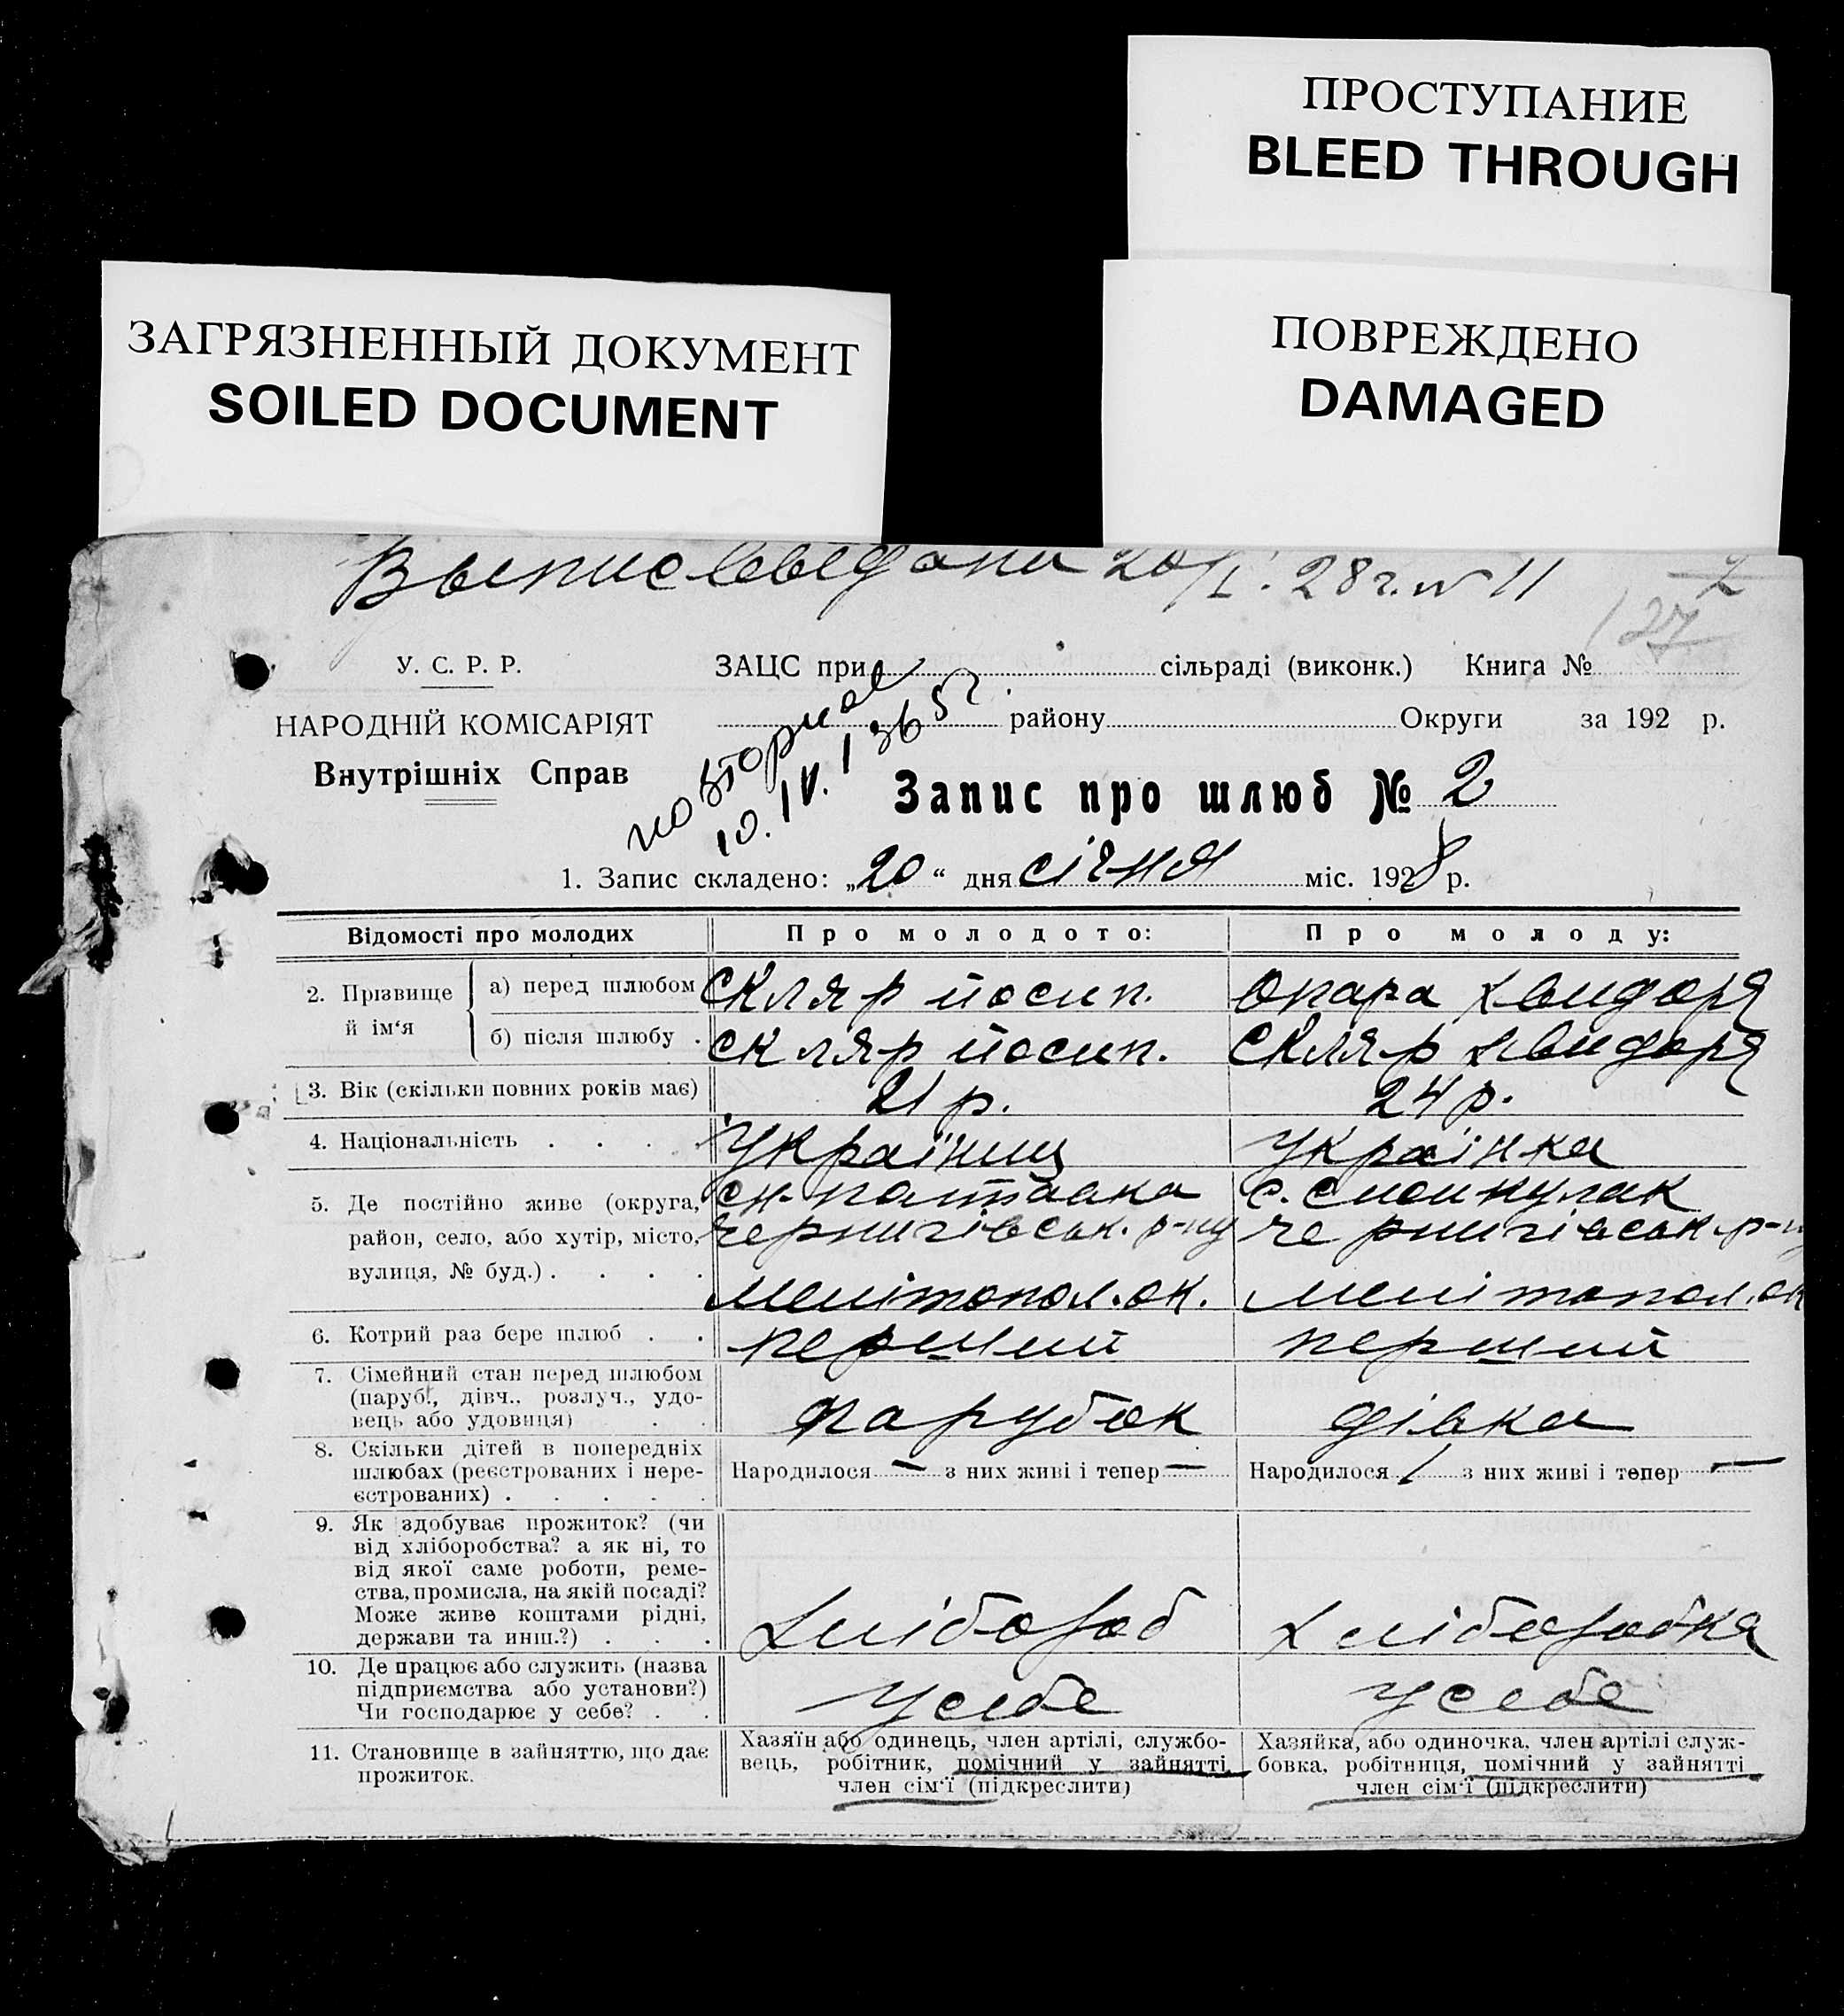 ПРОСТУПАНИЕ
BLEED THROUGH
ЗАГРЯЗНЕННЫЙ ДОКУМЕНТ
SOILED DOCUMENT
ПОВРЕЖДЕНО
DAMAGED
20/I. 28 г. № 11
127
У. С. Р. Р.
ЗАЦС при сільраді (виконк.) Книга №
НАРОДНІЙ КОМІСАРІЯТ
району Округи за 192 р.
Внутрішніх Справ
повторное
10. IV.
Запис про шлюб № 2
1. Запис складено: „20“ дня січня міс. 1928 р.
Відомості про молодих
Про молодого:
Про молоду:
2. Прізвище й ім‘я
а) перед шлюбом
Скляр йосип.
Опара
б) після шлюбу .
Скляр йосип.
Скляр
3. Вік (скільки повних років має)
21 р.
24 р.
4. Національність . . . .
Українець
Українка
5. Де постійно живе (округа,
район, село, або хутір, місто,
вулиця, № буд.) . . . .
Чернигівськ. р-ну
Мелітопол. ок.
с.
Чернигівськ р-ну
Мелітопол. ок
6. Котрий раз бере шлюб . .
перший
перший
7. Сімейний стан перед шлюбом
(паруб., дівч., розлуч., удо-
вець або удовиця) . .
парубок
дівка
8. Скільки дітей в попередніх
шлюбах (реєстрованих і нере-
єстрованих) . . . . .
Народилося — з них живі і тепер —
Народилося / з них живі і тепер —
9. Як здобуває прожиток? (чи
від хліборобства? а як ні, то
від якої саме роботи, реме-
ства, промисла, на якій посаді?
Може живе коштами рідні,
держави та инш.?) . . .
Хлібороб
Хліборобка
10. Де працює або служить (назва
підприємства або установи?)
Чи господарює у себе? . .
У себе
У себе
11. Становище в зайняттю, що дає
прожиток.
Хазяїн або одинець, член артілі, службо-
вець, робітник, помічний у зайнятті
член сім‘ї (підкреслити)
Хазяйка, або одиночка, член артілі служ-
бовка, робітниця, помічний у зайнятті
член сім‘ї (підкреслити)